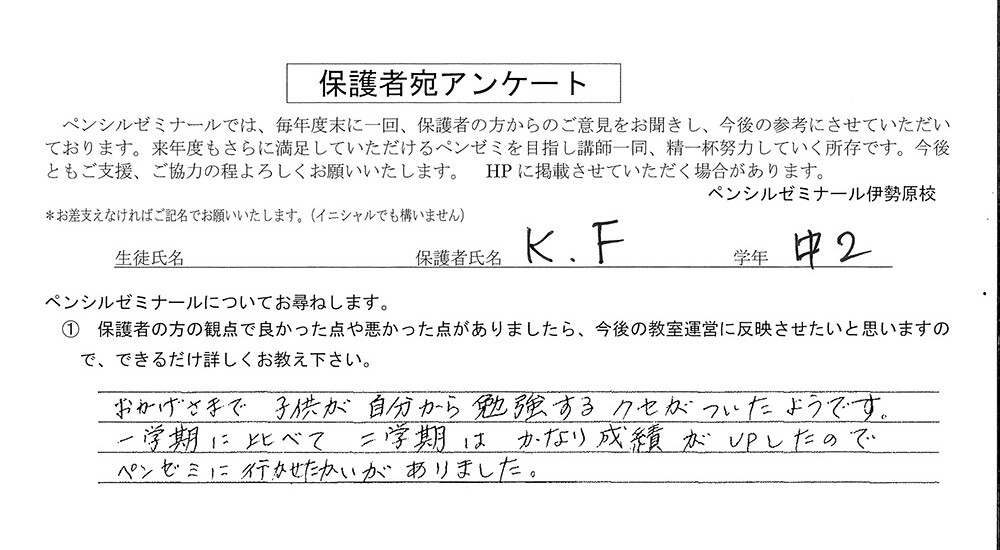 保護者宛アンケート
ペンシルゼミナールでは、毎年度末に一回、保護者の方からのご意見をお聞きし、今後の参考にさせていただい
ております。来年度もさらに満足していただけるペンゼミを目指し講師一同、精一杯努力していく所存です。今後
ともご支援、ご協力の程よろしくお願いいたします。　HPに掲載させていただく場合があります。
ペンシルゼミナール伊勢原校
＊お差支えなければご記名でお願いいたします。（イニシャルでも構いません）
生徒氏名　保護者氏名 K.F　学年 中2
ペンシルゼミナールについてお尋ねします。
①　保護者の方の観点で良かった点や悪かった点がありましたら、今後の教室運営に反映させたいと思いますの
で、できるだけ詳しくお教え下さい。
おかげさまで 子供が 自分から 勉強する クセが ついたようです。
一学期に 比べて 二学期は かなり成績が UPしたので
ペンゼミに 行かせたかいが ありました。